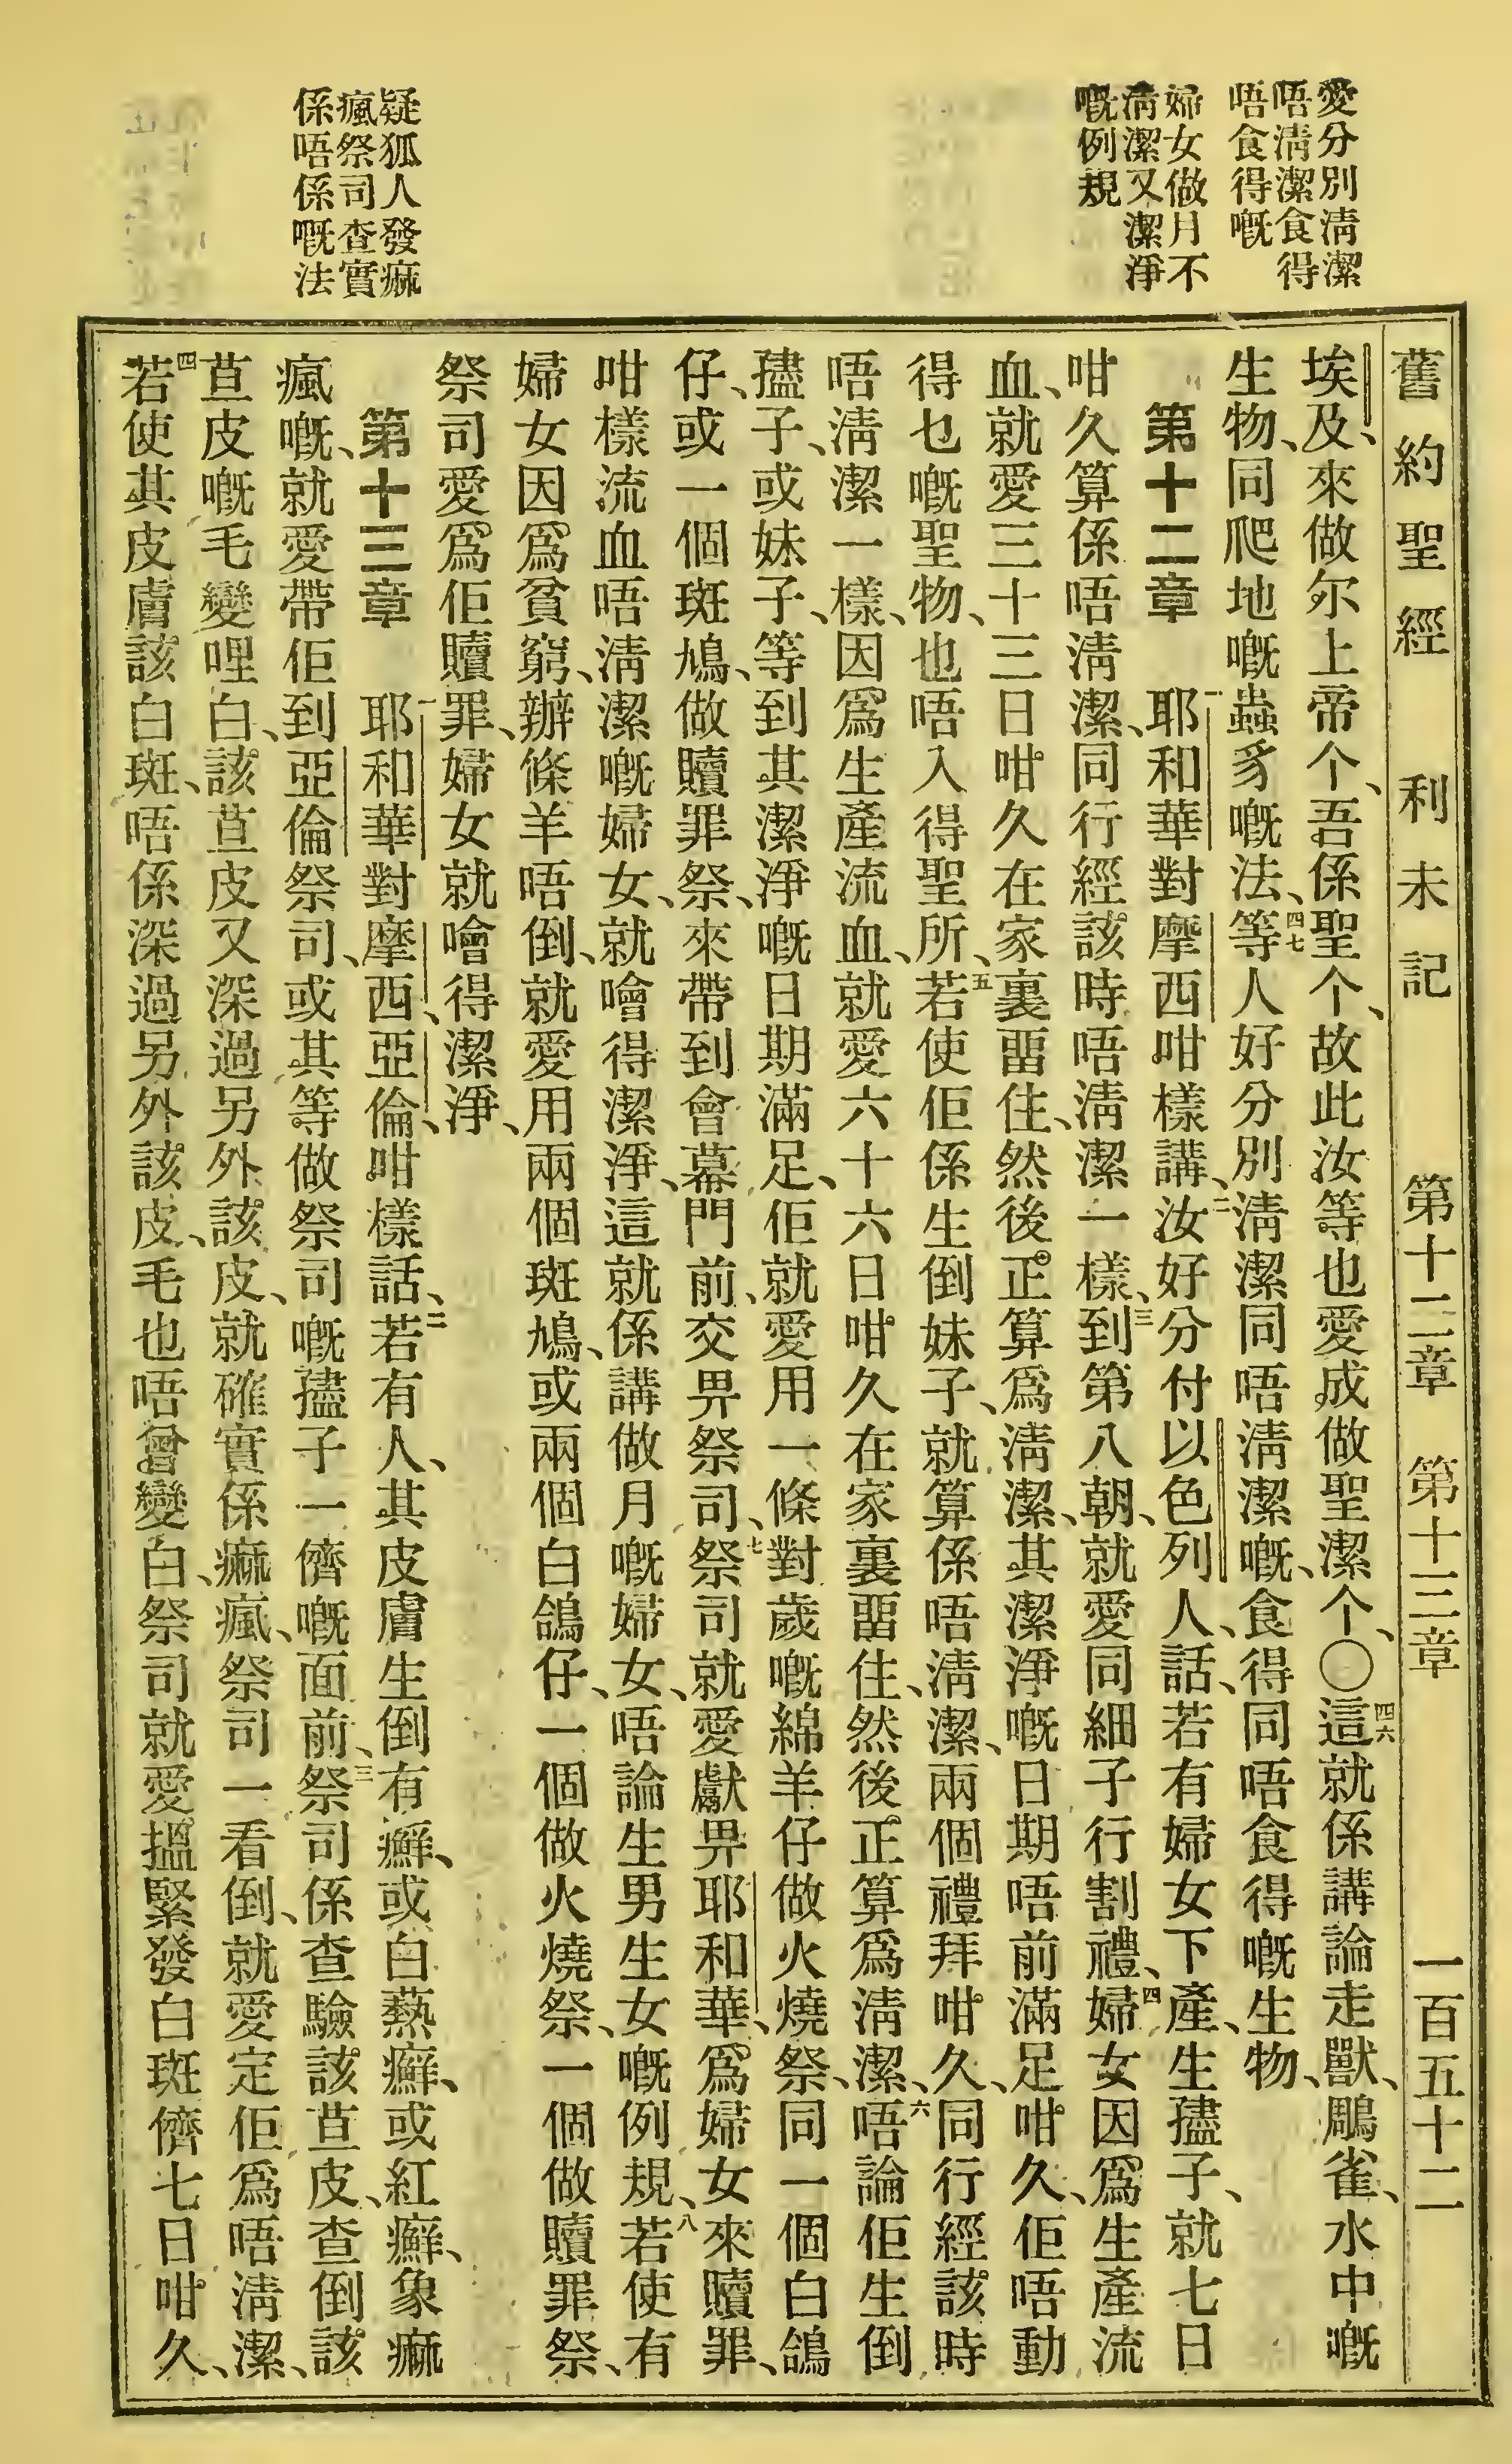 愛分別淸潔
唔淸潔食得
唔食得嘅
婦女做月不
淸潔又潔淨
嘅例規
疑狐人發痲
瘋祭司查實
係唔係嘅法
舊約聖經 利未記 第十二章 第十三章 一百五十二
埃及、來做尔上帝个、吾係聖个、故此汝等也愛成做聖潔个、〇四六這就係講論走獸、鵰雀、水中嘅
生物、同爬地嘅蟲豸嘅法、四七等人好分別淸潔同唔淸潔嘅、食得同唔食得嘅生物、
第十二章 一耶和華對摩西咁樣講、二汝好分付以色列人、話、若有婦女下產、生𡥧子、就七日
咁久算係唔淸潔、同行經該時唔淸潔一樣、三到第八朝、就愛同細子行割禮、四婦女因爲生產流
血、就愛三十三日咁久在家裏畱住、然後正算爲淸潔、其潔淨嘅日期唔前滿足咁久、佢唔動
得乜嘅聖物、也唔入得聖所、五若使佢係生倒妹子、就算係唔淸潔、兩個禮拜咁久、同行經該時
唔淸潔一樣、因爲生產流血、就愛六十六日咁久在家裏畱住、然後正算爲淸潔、六唔論佢生倒
𡥧子、或妹子、等到其潔淨嘅日期滿足、佢就愛用一條對歲嘅綿羊仔做火燒祭、同一個白鴿
仔、或一個斑鳩、做贖罪祭、來帶到會幕門前、交畀祭司、七祭司就愛獻畀耶和華、爲婦女來贖罪、
咁樣流血唔淸潔嘅婦女、就噲得潔淨、這就係講做月嘅婦女、唔論生男生女嘅例規、八若使有
婦女因爲貧窮、辦條羊唔倒、就愛用兩個斑鳩、或兩個白鴿仔、一個做火燒祭、一個做贖罪祭、
祭司愛爲佢贖罪、婦女就噲得潔淨、
第十三章 一耶和華對摩西、亞倫、咁樣話、二若有人、其皮膚生倒有癬、或白𤋮癬、或紅癬、象痲
瘋嘅、就愛帶佢到亞倫祭司、或其等做祭司嘅𡥧子一儕嘅面前、三祭司係查驗該苴皮、查倒該
苴皮嘅毛變哩白、該苴皮又深過另外該皮、就確實係痲瘋、祭司一看倒、就愛定佢爲唔淸潔、
四若使其皮膚該白斑、唔係深過另外該皮、毛也唔曾變白、祭司就愛搵緊發白斑儕七日咁久、